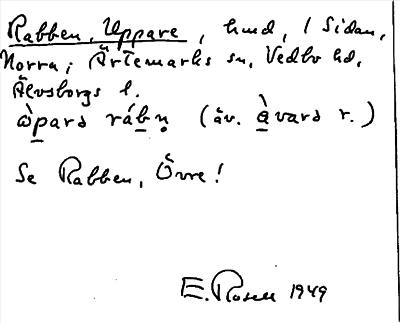 Rabben, Uppare, hmd, / Sidan,
Norra; Ärtemarks sn, Vedbo hd,
Älvsborgs l.
ɷ̀parə rábn̥ (äv. àvarə r.)
Se Rabben, Övre!
E. Rosell 1949